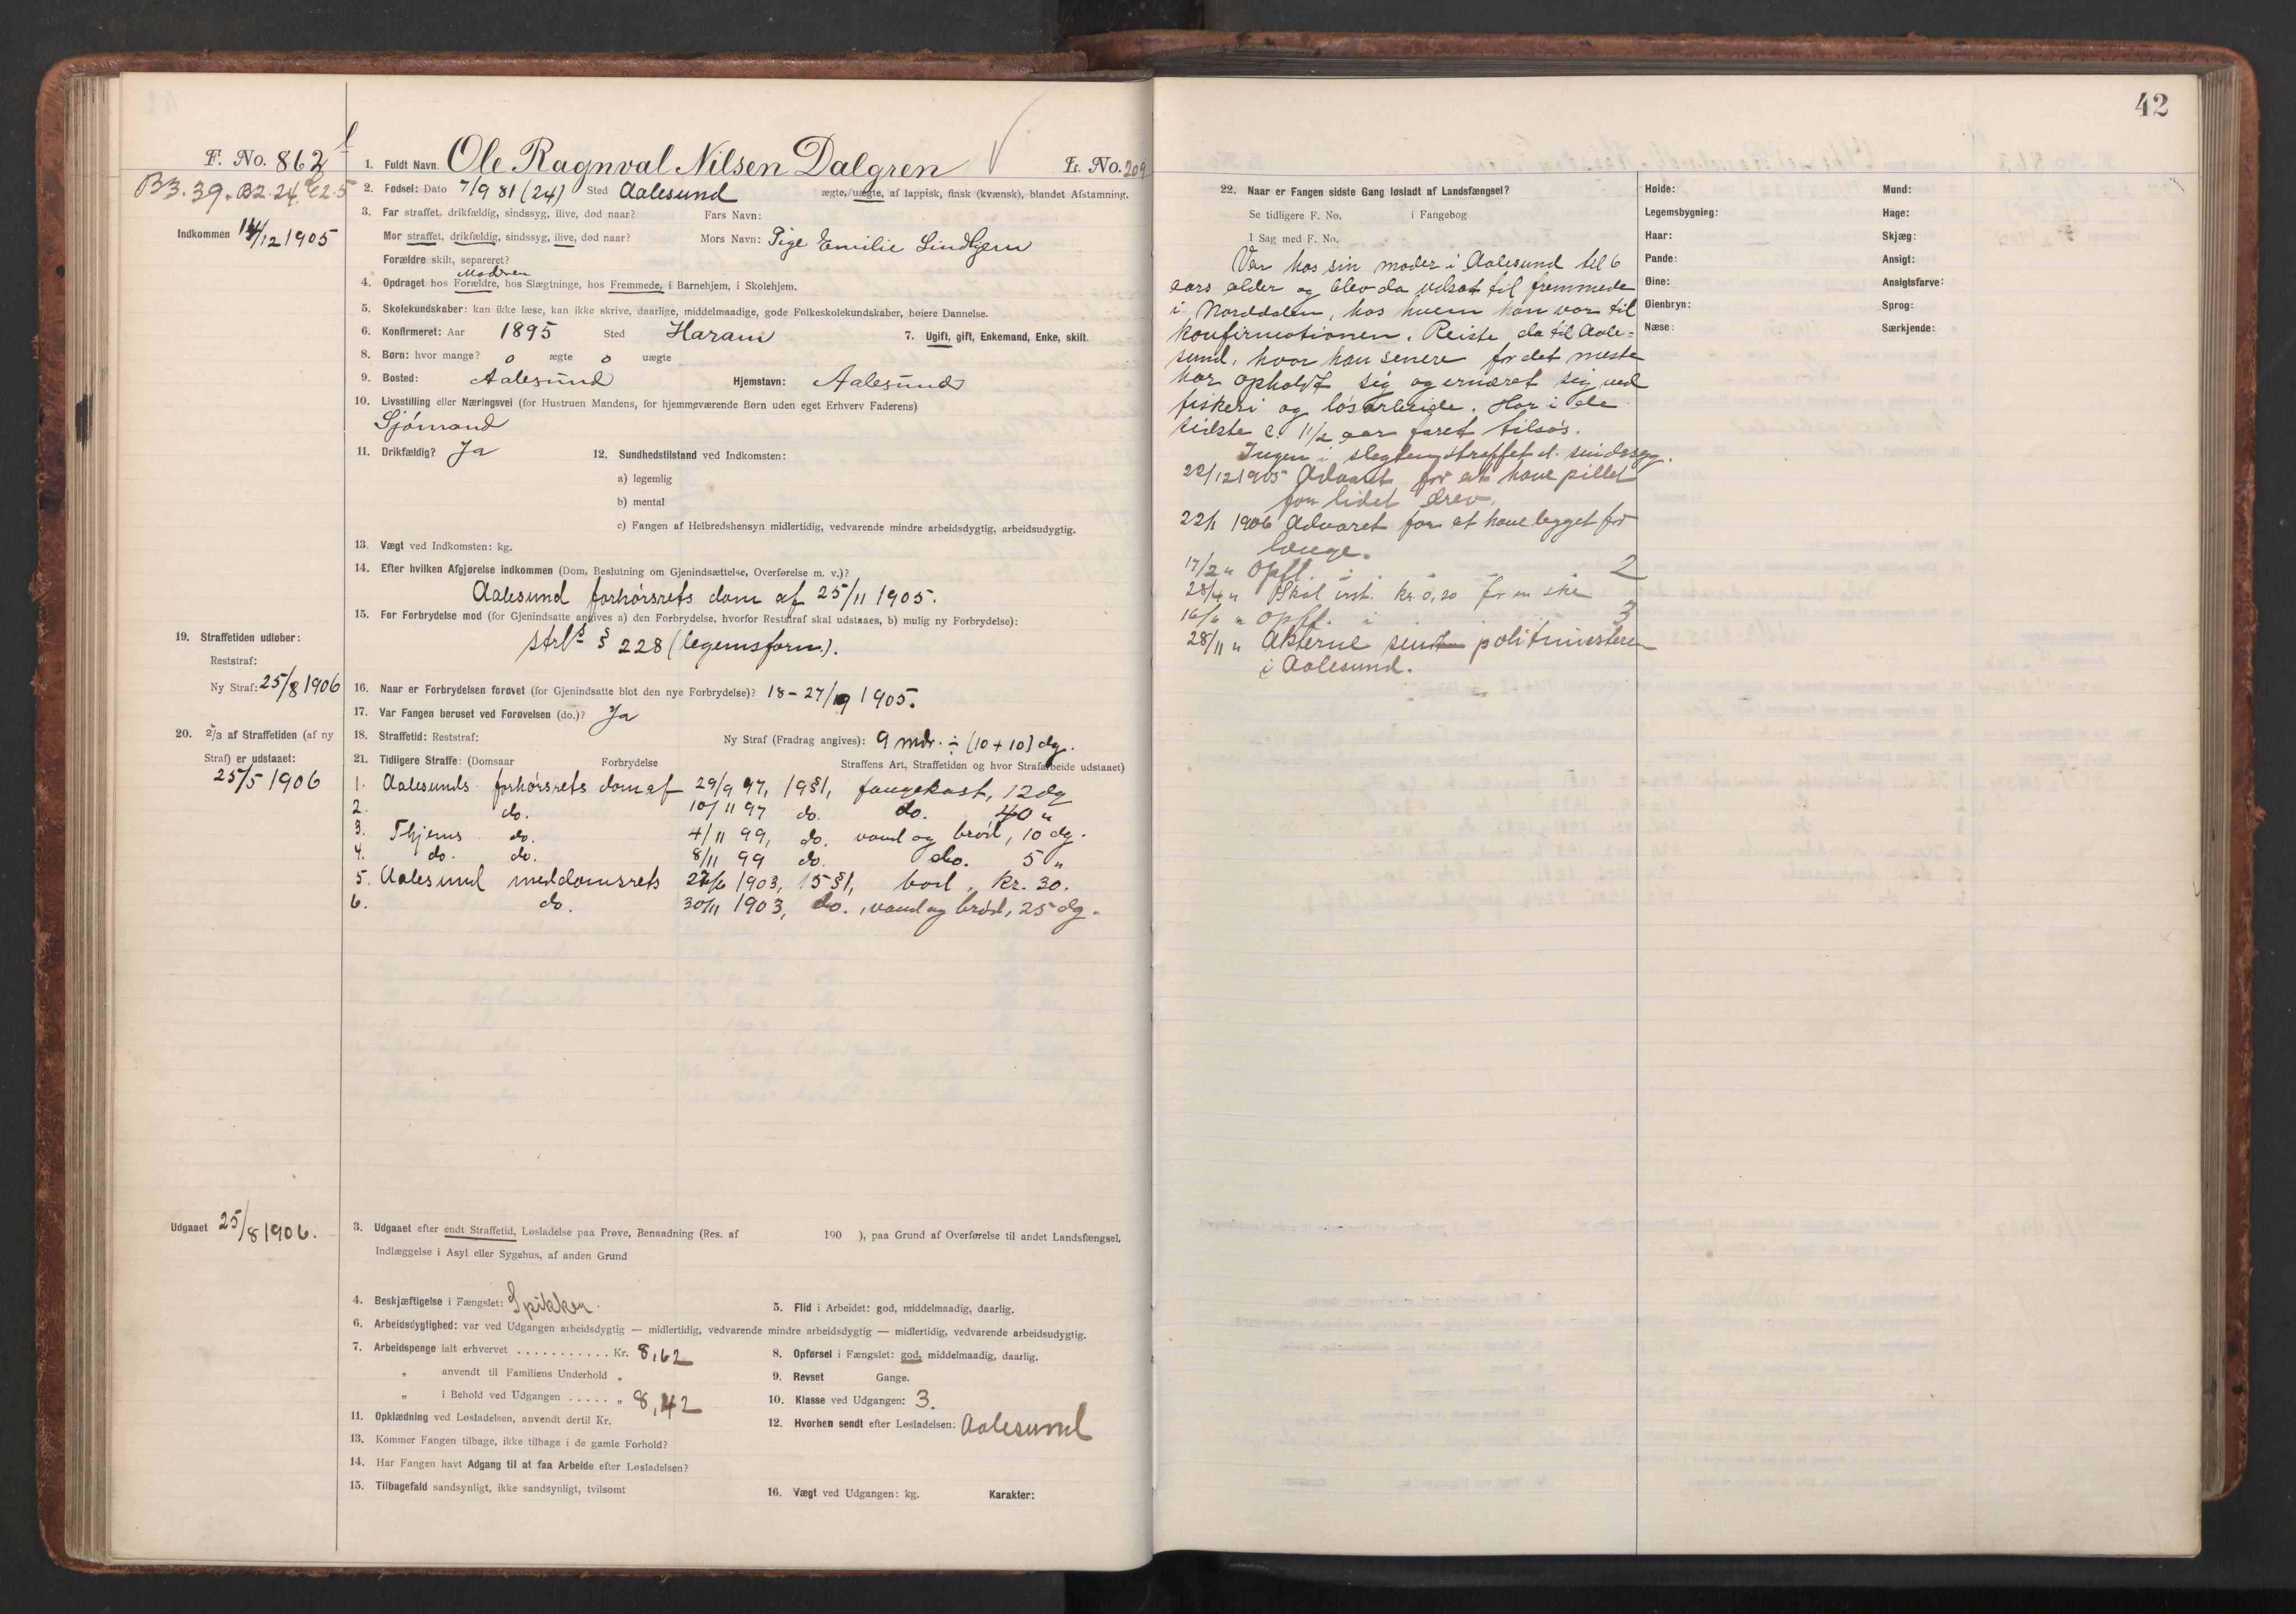 42
F. No. 862
1. Fuldt Navn Ole Ragnval Nilsen Dalgren L. No. 209
B3.39. B2.24. C2.5
2. Fødsel: Dato 7/9 81 (24) Sted Aalesund ægte, uægte, af lappisk, finsk (kvænsk), blandet Afstamning.
Indkommen 14/12 1905
3. Far straffet, drikfældig, sindssyg, ilive, død naar? Fars Navn:
Mor straffet, drikfældig, sindssyg, ilive, død naar? Mors Navn: Pige Emilie Lindgren
Forældre skilt, separeret?
Moderen
4. Opdraget hos Forældre, hos Slægtninge, hos Fremmede, i Barnehjem, i Skolehjem.
5. Skolekundskaber: kan ikke læse, kan ikke skrive, daarlige, middelmaadige, gode Folkeskolekundskaber, høiere Dannelse.
6. Konfirmeret: Aar 1895 Sted Haram 7. Ugift, gift, Enkemand, Enke, skilt.
8. Børn: hvor mange? 0 ægte 0 uægte
9. Bosted: Aalesund Hjemstavn: Aalesund
10. Livsstilling eller Næringsvei (for Hustruen Mandens, for hjemmeværende Børn uden eget Erhverv Faderens)
Sjømand
11. Drikfældig? Ja 12. Sundhedstilstand ved Indkomsten:
a) legemlig
b) mental
c) Fangen af Helbredshensyn midlertidig, vedvarende mindre arbeidsdygtig, arbeidsudygtig.
13. Vægt ved Indkomsten: kg.
14. Efter hvilken Afgjørelse indkommen (Dom, Beslutning om Gjenindsættelse, Overførelse m. v.)?
Aalesund forhørsrets dom af 25/11 1905.
15. For Forbrydelse mod (for Gjenindsatte angives a) den Forbrydelse, hvorfor Reststraf skal udstaaes, b) mulig ny Forbrydelse):
19. Straffetiden udløber:
strl § 228 (legemsforn.).
Reststraf:
Ny Straf: 25/8 1906
16. Naar er Forbrydelsen forøvet (for Gjenindsatte blot den nye Forbrydelse)? 18-27/9 1905.
17. Var Fangen beruset ved Forøvelsen (do.)? Ja
20. 2/3 af Straffetiden (af ny
Straf) er udstaaet:
25/5 1906
18. Straffetid: Reststraf: Ny Straf (Fradrag angives): 9 mdr. ÷ (10+10) dg.
21. Tidligere Straffe: (Domsaar Forbrydelse Straffens Art, Straffetiden og hvor Strafarbeide udstaaet)
1. Aalesunds forhørsrets dom af 29/9 97, 19§1, fangekost, 12 dg
2. do. 10/11 97 do. do. 40 "
3. Thjems do. 4/11 99, do. vand og brød, 10 dg.
4. do. do. 8/11 99 do. do. 5 "
5. Aalesund meddomsrets 1903, 15§1, bod, kr. 30.
6. do. 30/11 1903, do., vand og brød, 25 dg.
Udgaaet 25/8 1906.
3. Udgaaet efter endt Straffetid, Løsladelse paa Prøve, Benaadning (Res. af 190 ), paa Grund af Overførelse til andet Landsfængsel,
Indlæggelse i Asyl eller Sygehus, af anden Grund
4. Beskjæftigelse i Fængslet: Spikker 5. Flid i Arbeidet: god, middelmaadig, daarlig.
6. Arbeidsdygtighed: var ved Udgangen arbeidsdygtig — midlertidig, vedvarende mindre arbeidsdygtig — midlertidig, vedvarende arbeidsudygtig.
7. Arbeidspenge ialt erhvervet . . . . . . . . . . . Kr. 8,62 8. Opførsel i Fængslet: god, middelmaadig, daarlig.
" anvendt til Familiens Underhold " 9. Revset Gange.
" i Behold ved Udgangen . . . . . " 8,42 10. Klasse ved Udgangen: 3.
11. Opklædning ved Løsladelsen, anvendt dertil Kr. 12. Hvorhen sendt efter Løsladelsen: Aalesund
13. Kommer Fangen tilbage, ikke tilbage i de gamle Forhold?
14. Har Fangen havt Adgang til at faa Arbeide efter Løsladelsen?
15. Tilbagefald sandsynligt, ikke sandsynligt, tvilsomt 16. Vægt ved Udgangen: kg. Karakter:
22. Naar er Fangen sidste Gang løsladt af Landsfængsel?
Se tidligere F. No. i Fangebog
I Sag med F. No.
Var hos sin moder i Aalesund til 6
aars alder og blev da udsat til fremmede
i Norddalen, hos hvem han var til
konfirmationen. Reiste da til Aale=
sund, hvor han senere for det meste
har opholdt sig og ernæret sig ved
fiskeri og løsarbeide. Har i de
sidste c. 1 1/2 aar faret tilsøs.
Ingen i slegten straffet el. sindssyg.
22/12 1905 Advaret for at have pillet
for lidet drev.
22/1 1906 Advaret for at have ligget for
længe.
17/2 " Opfl. i 2
28/4 " Skal erst. kr. 0,20 for en ske
16/6 " Opfl. i 3
28/11 " Akterne sendt politimesteren
i Aalesund.
Høide: Mund:
Legemsbygning: Hage:
Haar: Skjæg:
Pande: Ansigt:
Øine: Ansigtsfarve:
Øienbryn: Sprog:
Næse: Særkjende: